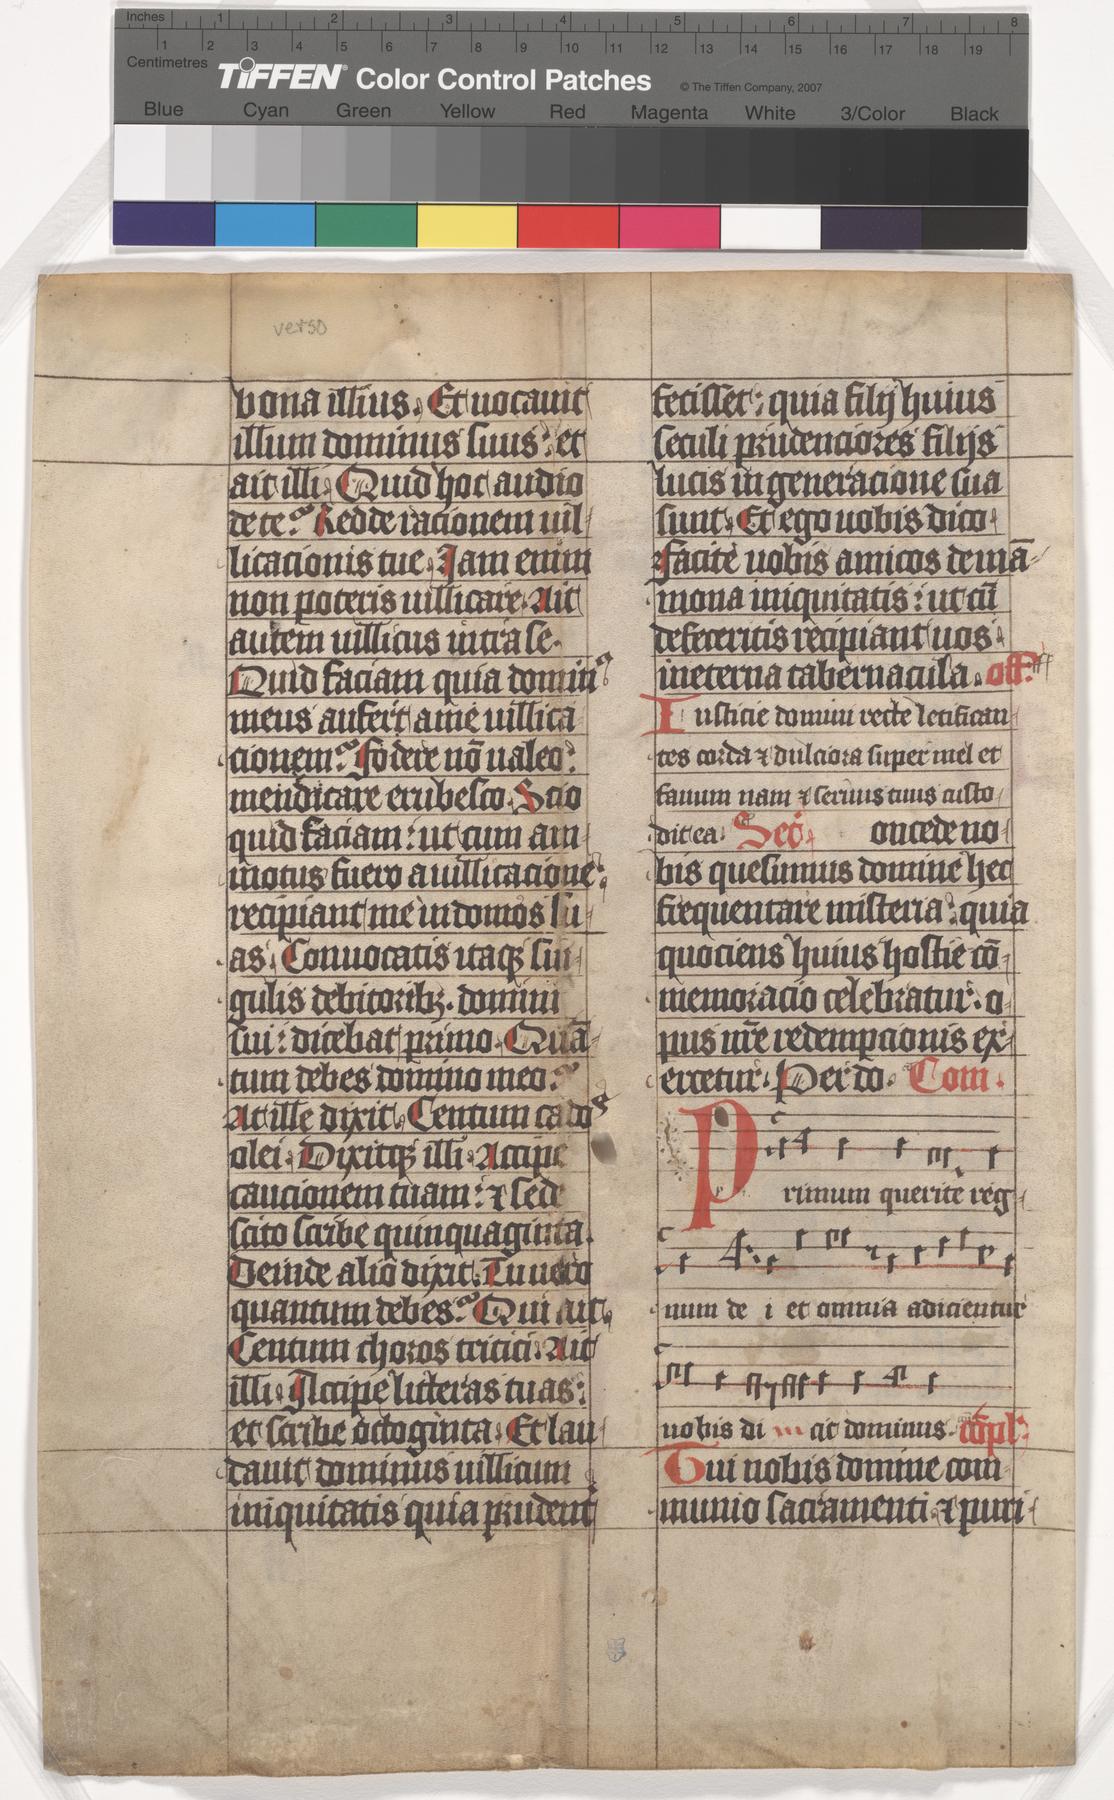 Inches 1 2 3 4 5 6 7 8
1 2 3 4 5 6 7 8 9 10 11 12 13 14 15 16 17 18 19
Centimetres
TIFFEN® Color Control Patches © The Tiffen Company, 2007
Blue Cyan Green Yellow Red Magenta White 3/Color Black
verso
bona illius. Et uocauit
illum dominus suus: et
ait illi. Quid hoc audio
de te? Redde racionem uil
licacionis tue. Jam enim
non poteris uillicare. Ait
autem uillicus intra se.
Quid faciam quia domin⁹
meus aufert a me uillica
cionem? Fodere nō ualeo:
mendicare erubesco. Scio
quid faciam: ut cum am
motus fuero a uillicacione:
recipiant me in domos su
as. Conuocatis itaqꝫ sin
gulis debitoribꝫ. domini
sui: dicebat primo. Quā
tum debes domino meo?
At ille dixit. Centum cados
olei. Dixitqꝫ illi. Accipe
caucionem tuam: ⁊ sede
scito scribe quinquaginta.
Deinde alio dixit. Tu uero
quantum debes? Qui ait.
Centum choros tritici. Ait
illi. Accipe litteras tuas:
et scribe octoginta. Et lau
dauit dominus uillicum
iniquitatis quia prudent͛
fecisset: quia filij huius
seculi prudenciores filijs
lucis in generacione sua
sunt. Et ego uobis dico
facite uobis amicos de mā
mona iniquitatis: ut cū
defeceritis recipiant uos
in eterna tabernacula. off.
Iusticie domini recte letifican
tes corda ⁊ dulciora super mel et
fauum nam ⁊ seruus tuus custo
dit ea. Sec̄. oncede no
bis quesumus domine hec
frequentare misteria: quia
quociens huius hostie cō
memoracio celebratur: o
pus nr̄e redempcionis ex
ercetur. Per dō. Com.
Primum querite reg
num de i et omnia adicientur
uobis di cit dominus. cōpl.
Tui nobis domine com
munio sacramenti ⁊ puri